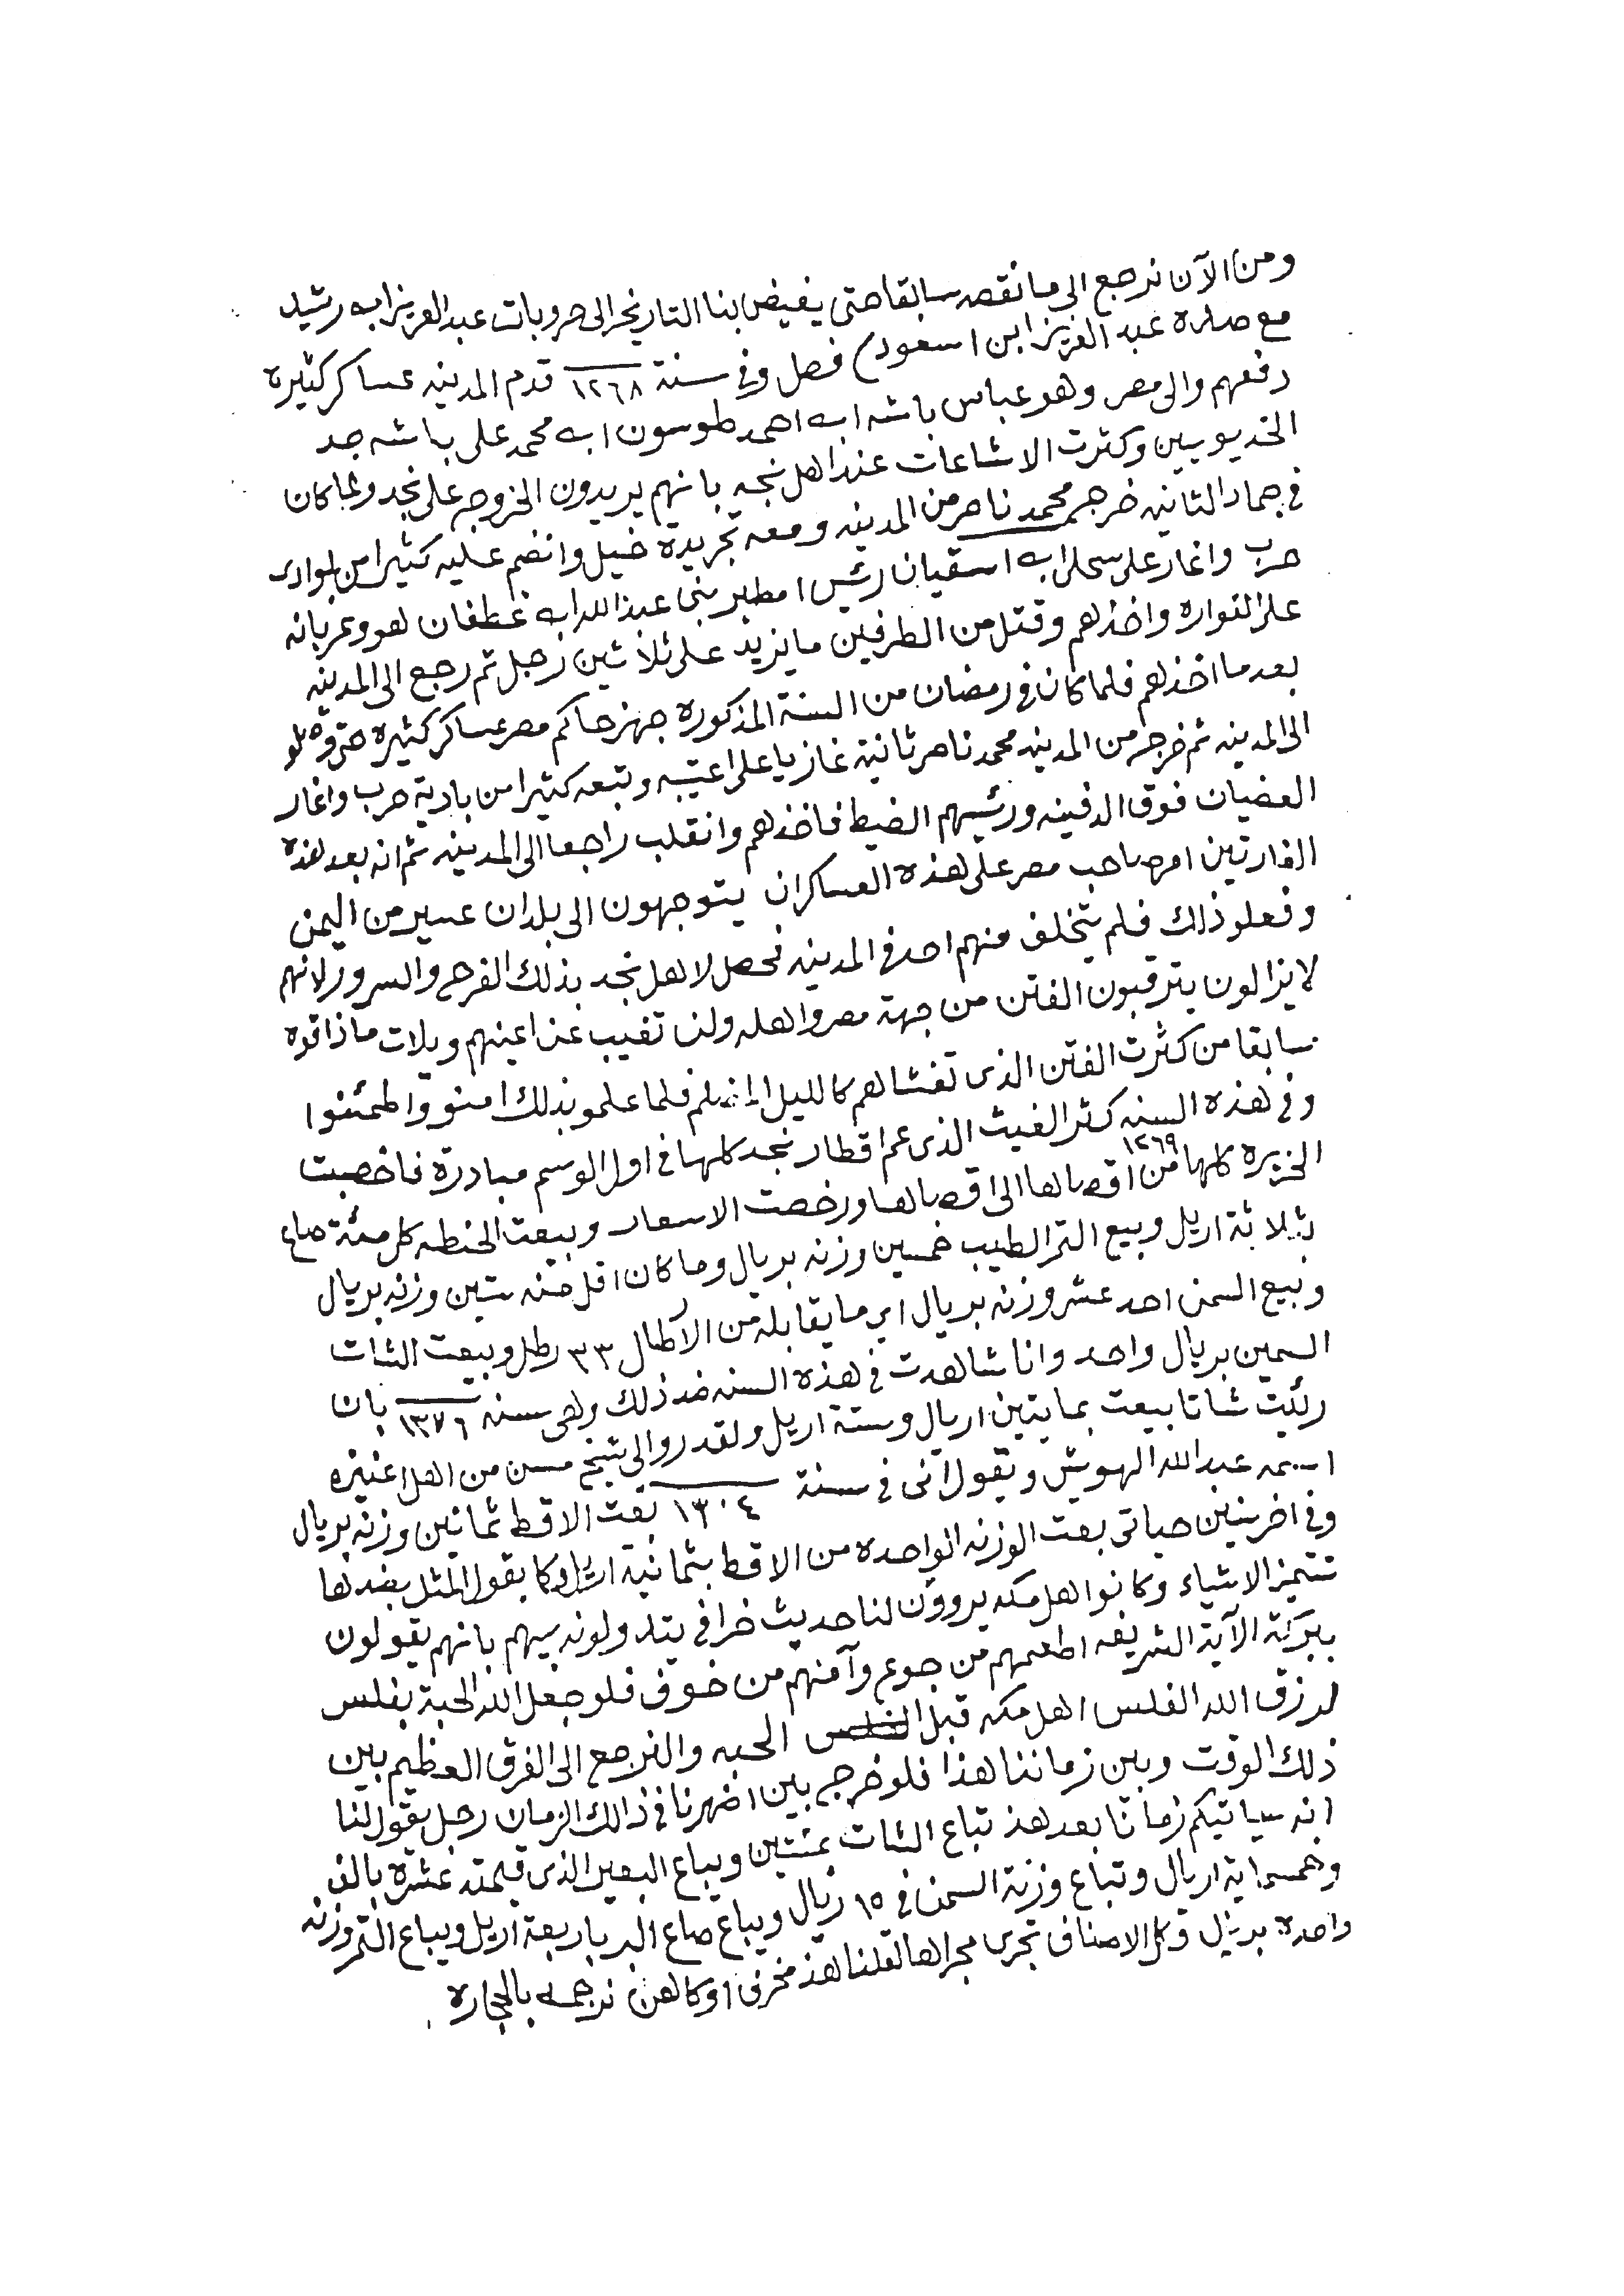 ومن الآن نرجع الى ما نقصه سابقا حتى يفيض بنا التاريخ الى حروبات عبد العزيز ابن رشيد
مع صلاة عبد العزيز ابن اسعود) فصل وفي سنة ١٢٦٨ قدم المدينه عساكر كثيره
دفعهم والى مصر وهو عباس باشه ابن احمد طوسون ابن محمد على باشه جد
الخديويين وكثرت الاشاعات عند اهل نجد بانهم يريدون الخروج على نجد ولما كان
في جماد الثانيه خرج محمد ناصر من المدينه ومعه تجريدة خيل وانضم عليه كثيرا من بوادى
حرب واغار على سحلى ابن اسقيان رئس امطير بني عبد الله ابن غطفان هو وعربانه
على الفواره واخذهم وقتل من الطرفين ما يزيد على ثلاثين رجل ثم رجع الى المدينه
بعد ما اخذهم فلما كان في رمضان من السنة المذكوره جهز حاكم مصر عساكر كثيره حتى وصلو
الى المدينه ثم خرج من المدينه محمد ناصر ثانية غازيا على اعتيبه وتبعه كثيرا من بادية حرب واغار
العضيان فوق الدفينه ورئسهم الضيط فاخذهم وانقلب راجعا الى المدينه ثم انه بعد هذه
الغارتين امر صاحب مصر على هذه العساكر ان يتوجهون الى بلدان عسير من اليمن
وفعلو ذالك فلم يتخلف منهم احد في المدينه فحصل لاهل نجد بذلك الفرح والسرور لانهم
لايزالون يترقبون الفتن من جهة مصر واهله ولن تغيب عن اعينهم ويلات ماذاقوه
سابقا من كثرت الفتن الذى تغشاهم كالليل المظلم فلما علمو بذلك امنو واطمئنوا
وفي هذه السنه ١٢٦٩ كثر الغيث الذى عم اقطار نجد كلها في اول الوسم مبادرة فاخصبت
الجزيره كلها من اقصاها الى اقصاها ورخصت الاسعار وبيعت الحنطه كل مئة صاع
بثلاثة اريل وبيع التمر الطيب خمسين وزنه بريال وما كان اقل منه ستين وزنه بريال
وبيع السمن احد عشر وزنه بريال اي ما يقابله من الأرطال ٣٣ رطل وبيعت الشات
السمين بريال واحد وانا شاهدت في هذه السنه ضد ذلك وهى سنه ١٣٧٦ بان
رئيت شاتا بيعت بمايتين اريال وستة اريل ولقد روا لي شيخ مسن من اهل اعنيزه
اسمه عبد الله الهويش ويقول انى في سنة ١٣٠٤ بعت الاقط ثمانين وزنه بريال
وفي اخر سنين حياتى بعت الوزنه الواحده من الاقط بثمانية اريل وكما يقول المثل بضدها
تتميز الاشياء وكانوا اهل مكه يروون لنا حديث خرافي يتداولونه بينهم بانهم يقولون
ببركة الآية الشريفه اطعمهم من جوع وآمنهم من خوف فلو جعل الله الحبة بفلس
لرزق الله الفلس اهل مكه قبل الحبه والنرجع الى الفرق العظيم بين
ذلك الوقت وبين زماننا هذا فلو خرج بين اضهرنا في ذالك الزمان رجل يقول لنا
انه سياتيكم زمانا بعد هذ تباع الشات بمئتين ويباع البعير الذى قيمته عشره بالف
وخمسماية اريال وتباع وزنة السمن في ١٥ ريال ويباع صاع البر باربعة اريل ويباع التمر وزنه
واحده بريال وكل الاصناف تجرى مجراها لقلنا هذ مخرف اوكاهن نرجمه بالحجاره